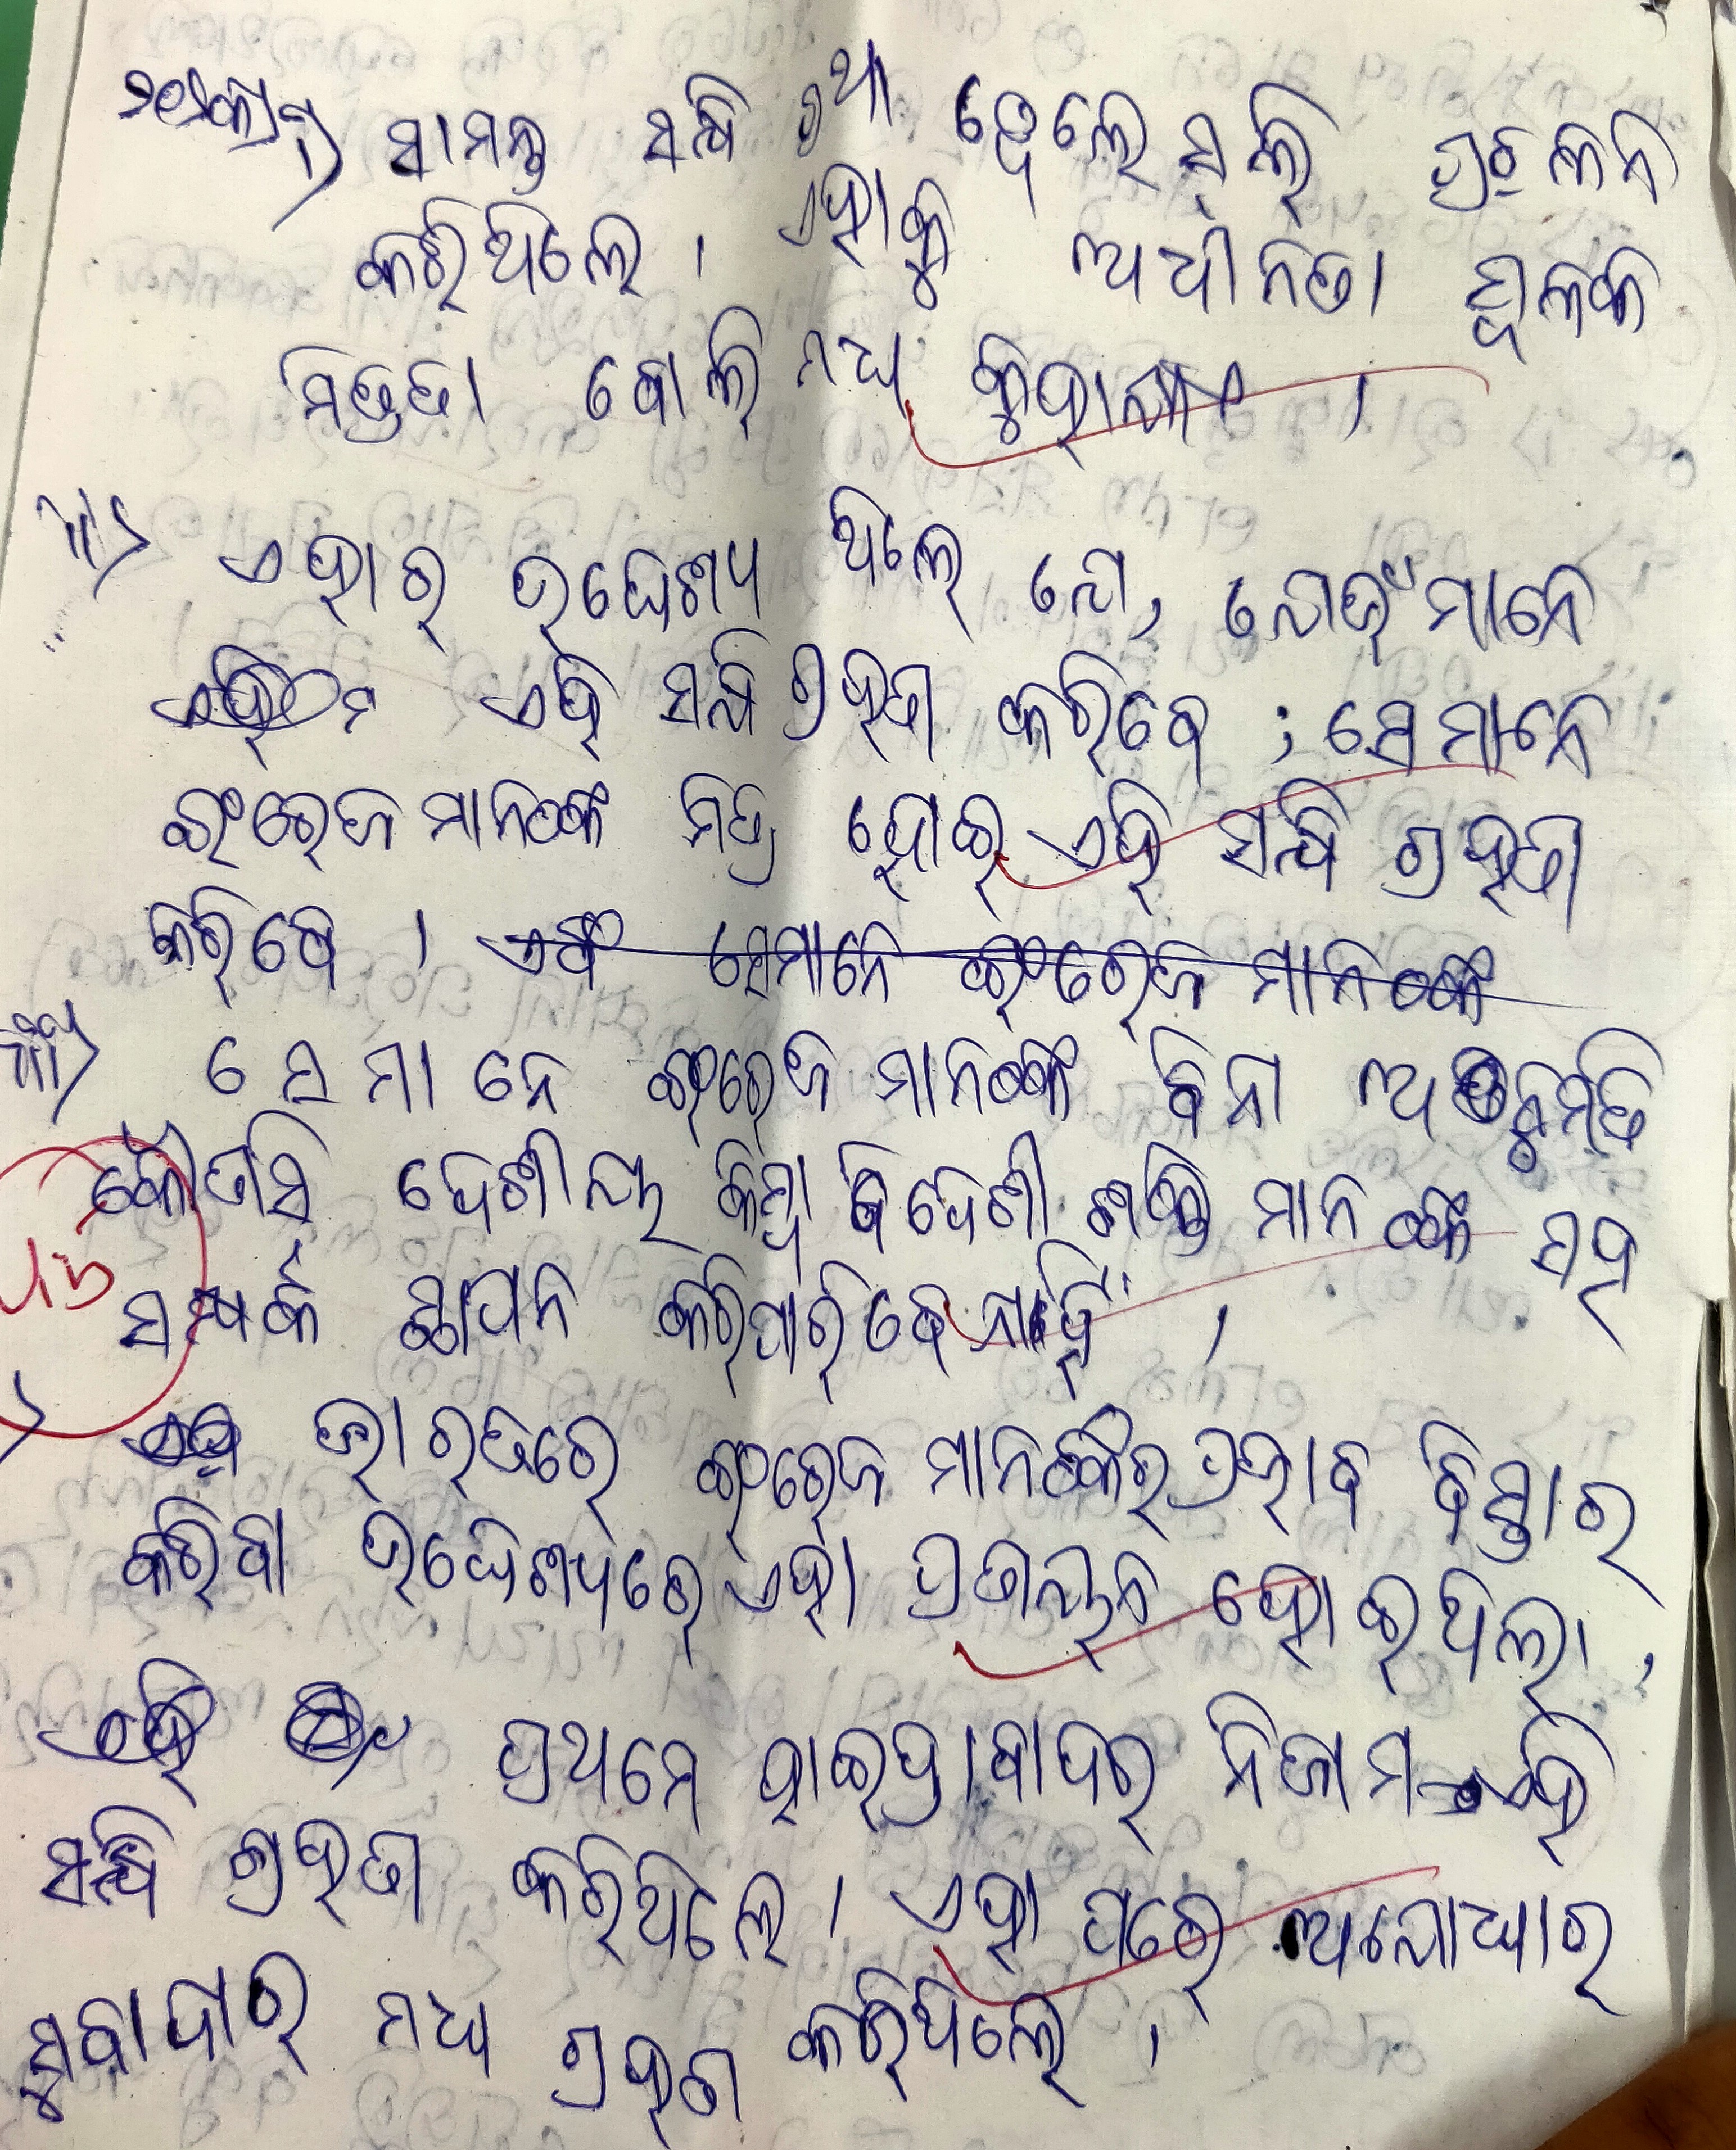 i) ସାମନ୍ତ ସନ୍ଧି ତଥା ୱେଲେସଲି ପ୍ରଚଳନ
କରିଥିଲେ । ଏହାକୁ ଅଧୀନତା ମୂଳକ
ମିତ୍ରତା ବୋଲି ମଧ୍ୟ କୁହାଯାଏ ।
ii) ଏହାର ଉଦ୍ଦେଶ୍ୟ ଥିଲେ ଯେ, ଯେଉଁମାନେ
ଏହି ସନ୍ଧି ଗ୍ରହଣ କରିବେ ; ସେମାନେ
ଇଂରେଜ ମାନଙ୍କ ମିତ୍ର ହୋଇ ଏହି ସନ୍ଧି ଗ୍ରହଣ
କରିବେ । ଏବଂ ସେମାନେ ଇଂରେଜ ମାନଙ୍କ
iii) ସେମାନେ ଇଂରେଜ ମାନଙ୍କ ବିନା ଅନୁମତି
କୌଣସି ଦେଶୀୟ କିମ୍ବା ବିଦେଶୀ ଶକ୍ତି ମାନଙ୍କ ସହ
ସମ୍ପର୍କ ସ୍ଥାପନ କରିପାରିବେ ନାହିଁ ।
ଭାରତରେ ଇଂରେଜ ମାନଙ୍କର ପ୍ରଭାବ ବିସ୍ତାର
କରିବା ଉଦ୍ଦେଶ୍ୟରେ ଏହା ପ୍ରଣୟନ ହୋଇଥିଲା ,
ଏହି ପ୍ରଥମେ ହାଇଦ୍ରାବାଦର ନିଜାମ ଏହି
ସନ୍ଧି ଗ୍ରହଣ କରିଥିଲେ । ଏହା ପରେ ଅଯୋଧ୍ୟାର
ସୁବାଦାର ମଧ୍ୟ ଗ୍ରହଣ କରିଥିଲେ ।